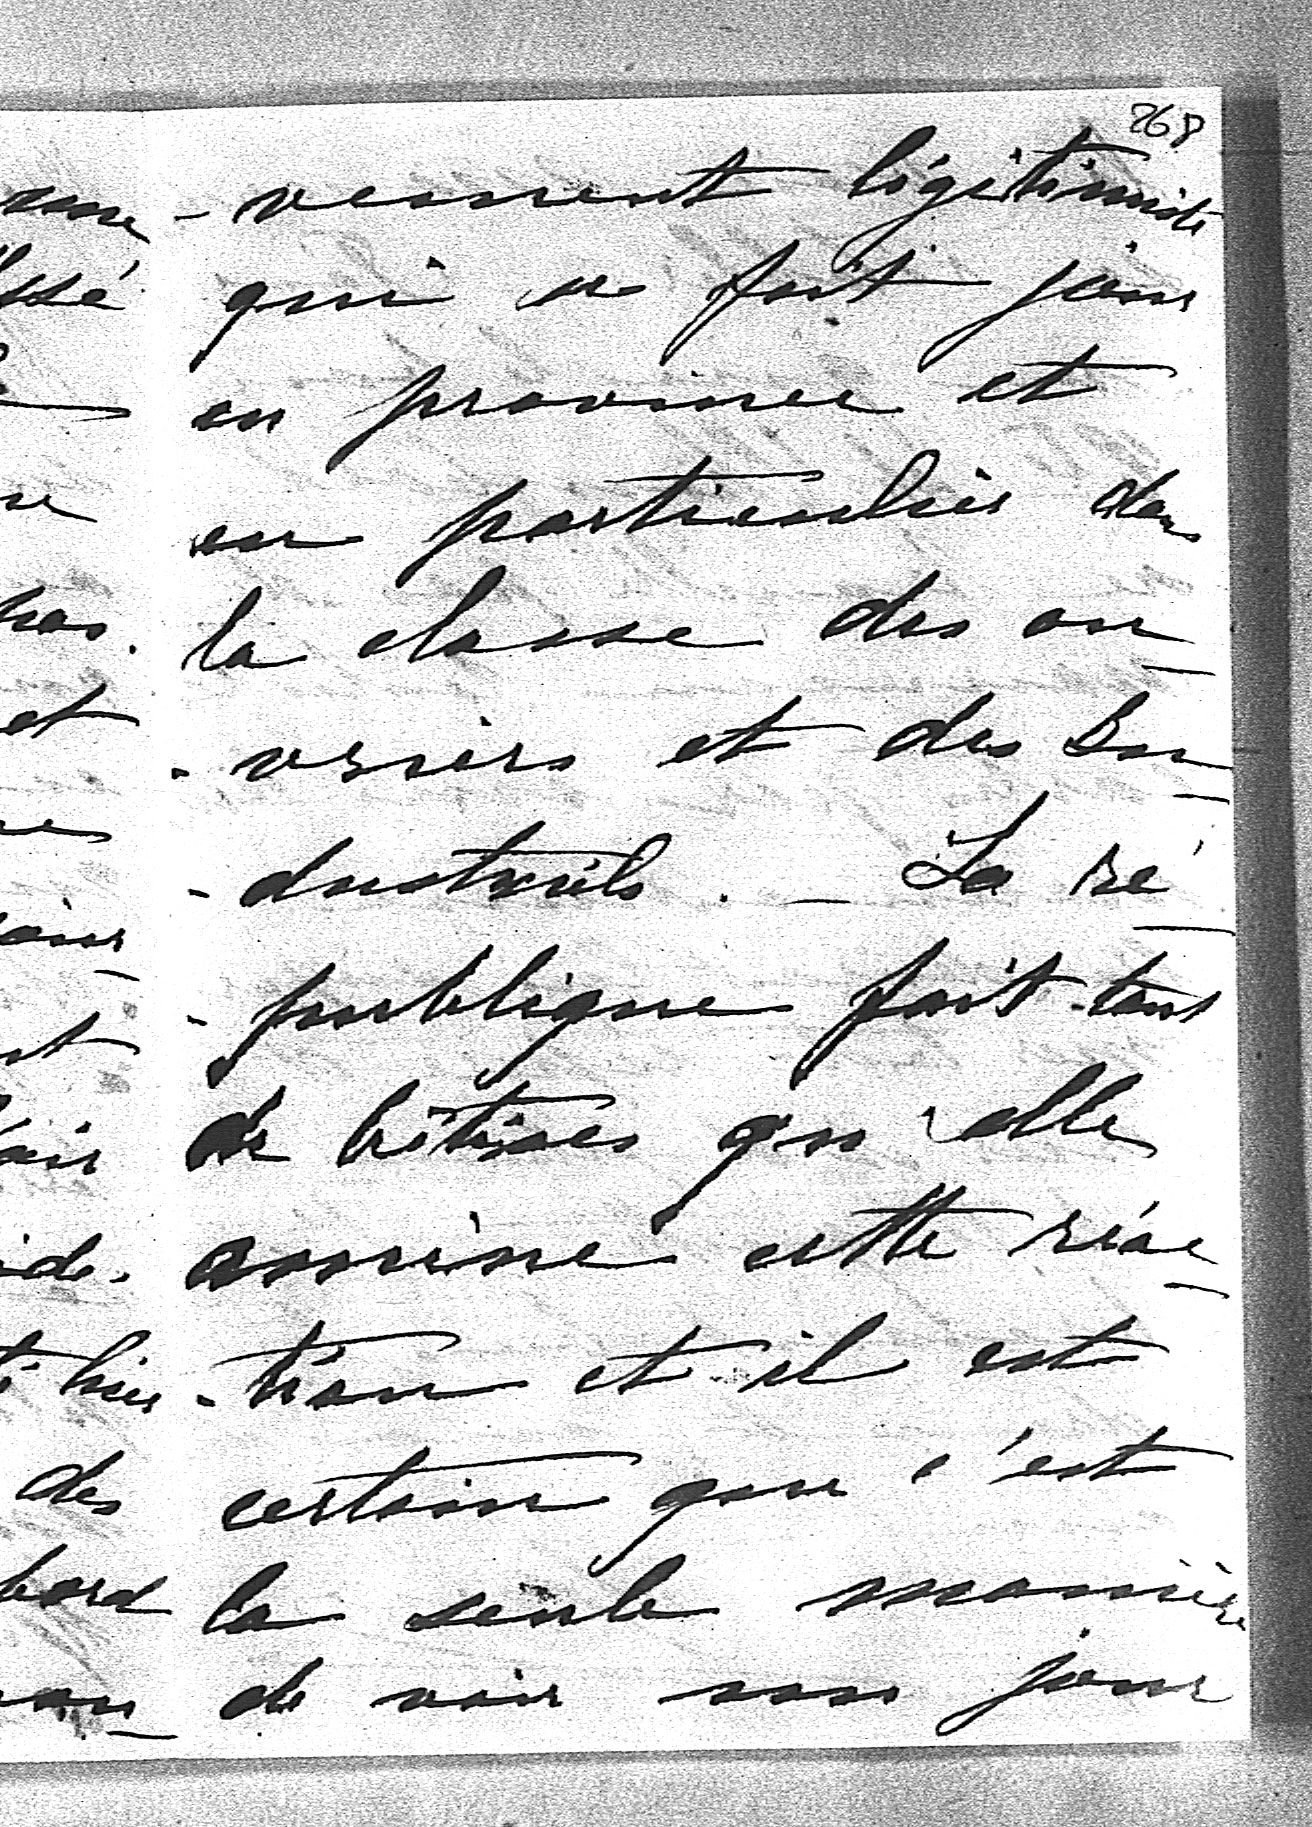 268
- vement légitimiste
qui se fait jour
en province et
en particulier dans
la classe des ou-
- vriers et des In-
- dustriels. - La ré-
- publique fait tant
de bêtises qu'elle
amène cette réac-
- tion et il est
certain que c'est
la seule manière
de voir son jour